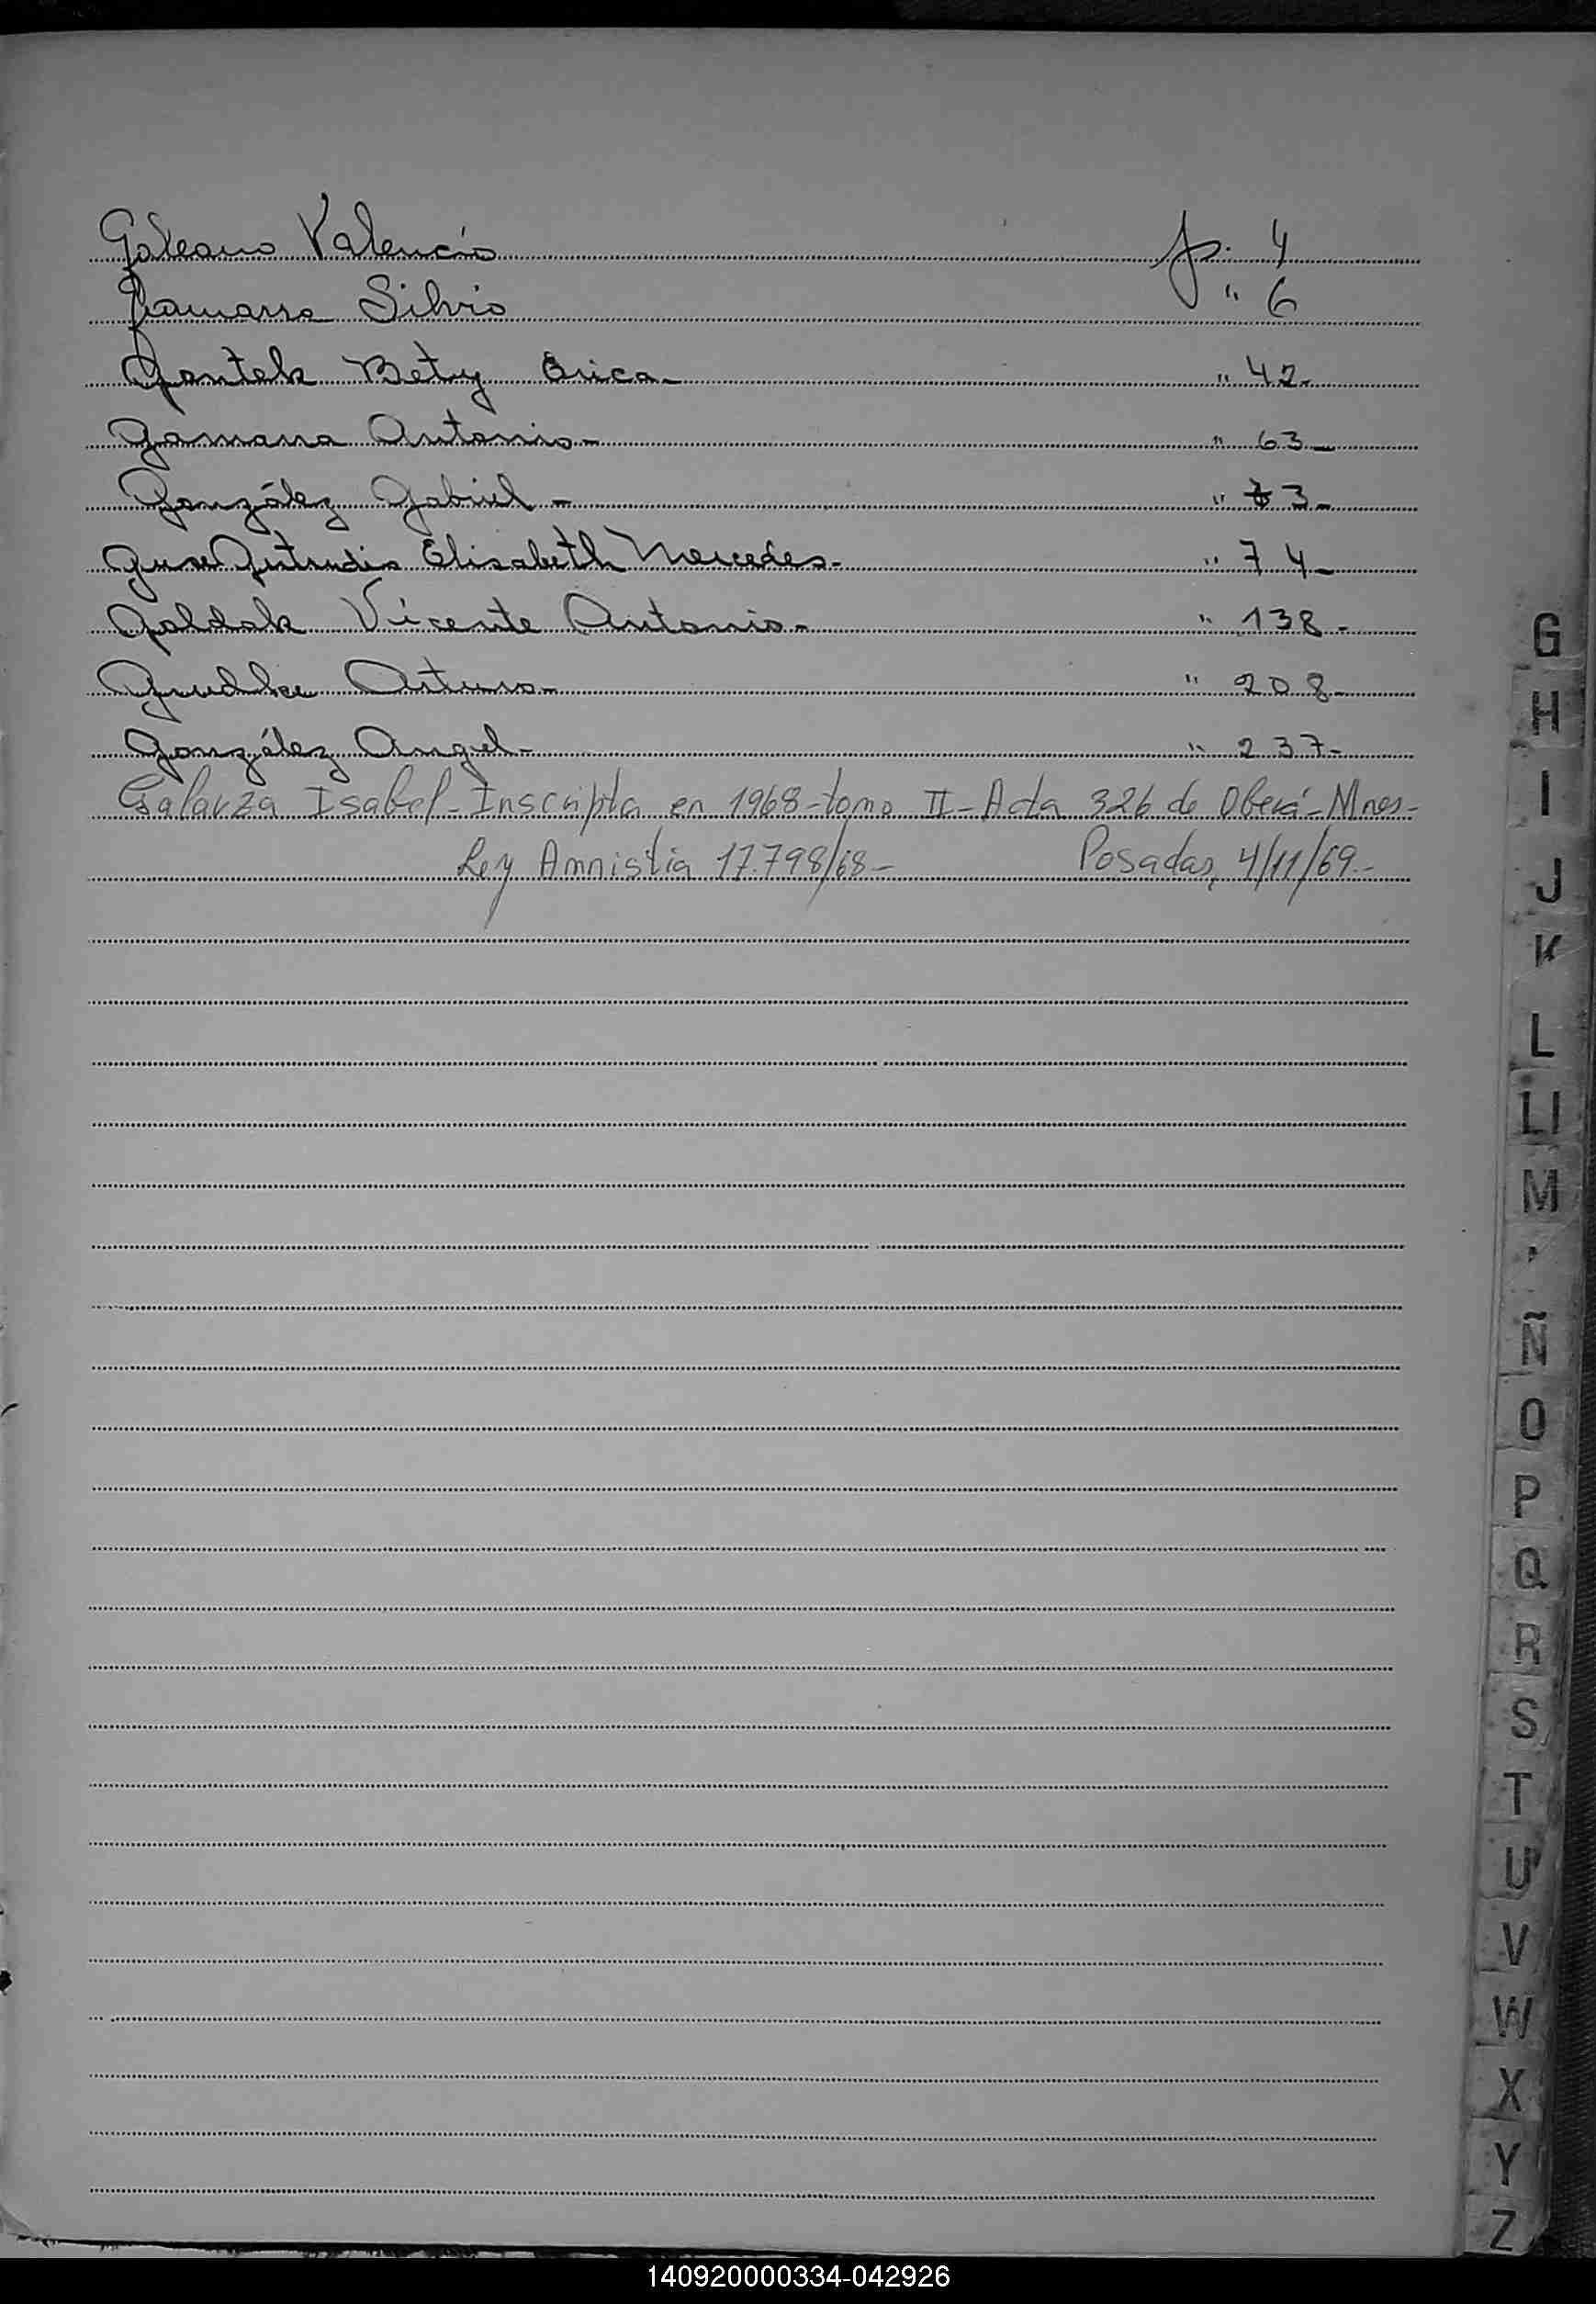 Galeano Valencio p. 4
Gamarra Silvio " 6
Gontek Bety Erica- " 42-
Gamarra Antonio- " 63-
González Gabriel- " 73-
Guse Gertrudis Elisabeth Mercedes- " 74-
Goldak Vicente Antonio- " 138-
Arturo- " 208-
González Angel- " 237-
Galarza Isabel-Inscripta en 1968-tomo II-Acta 326 de Oberá-Mnes-
Ley Amnistia 17.798/68- Posadas, 4/11/69.-
G
H
I
J
K
L
Ll
M
Ñ
O
P
Q
R
S
T
U
V
W
X
Y
Z
140920000334-042926